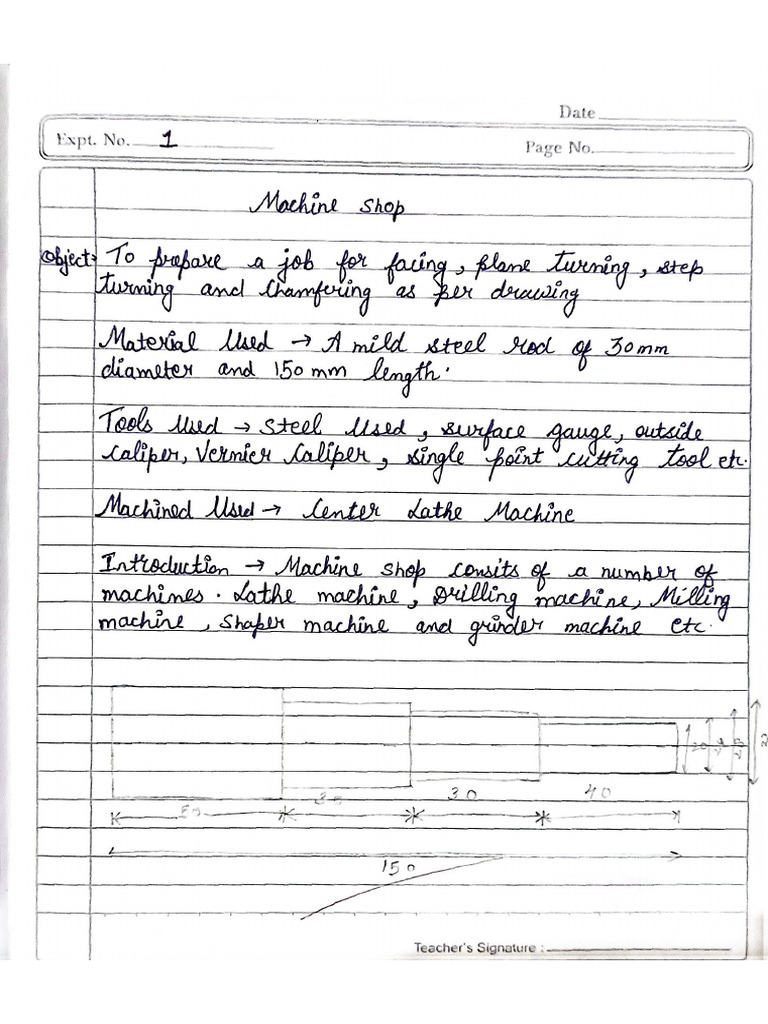 Date
Expt. No. 1
Page No.
Machine Shop
Object: To prepare a job for facing, plane turning, step
turning and Chamfering as per drawing
Material Used → A mild steel rod of 30mm
diameter and 150 mm length.
Tools Used → Steel Used, surface gauge, outside
caliper, Vernier Caliper, single point cutting tool etc.
Machined Used → Center Lathe Machine
Introduction → Machine shop consits of a number of
machines. Lathe machine, Drilling machine, Milling
machine, Shaper machine and grinder machine etc.
20
30 40
150
Teacher's Signature :